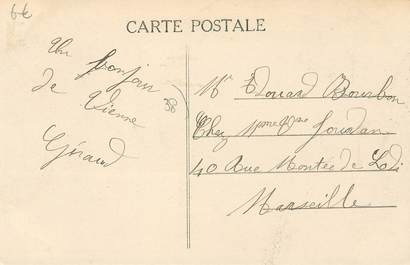 6€
CARTE POSTALE
Un bonjour
de Vienne
Géraud
Mr Edouard Bourbon
Chez Mme Vve Jourdan
40 Rue Montée de Lodi
Marseille